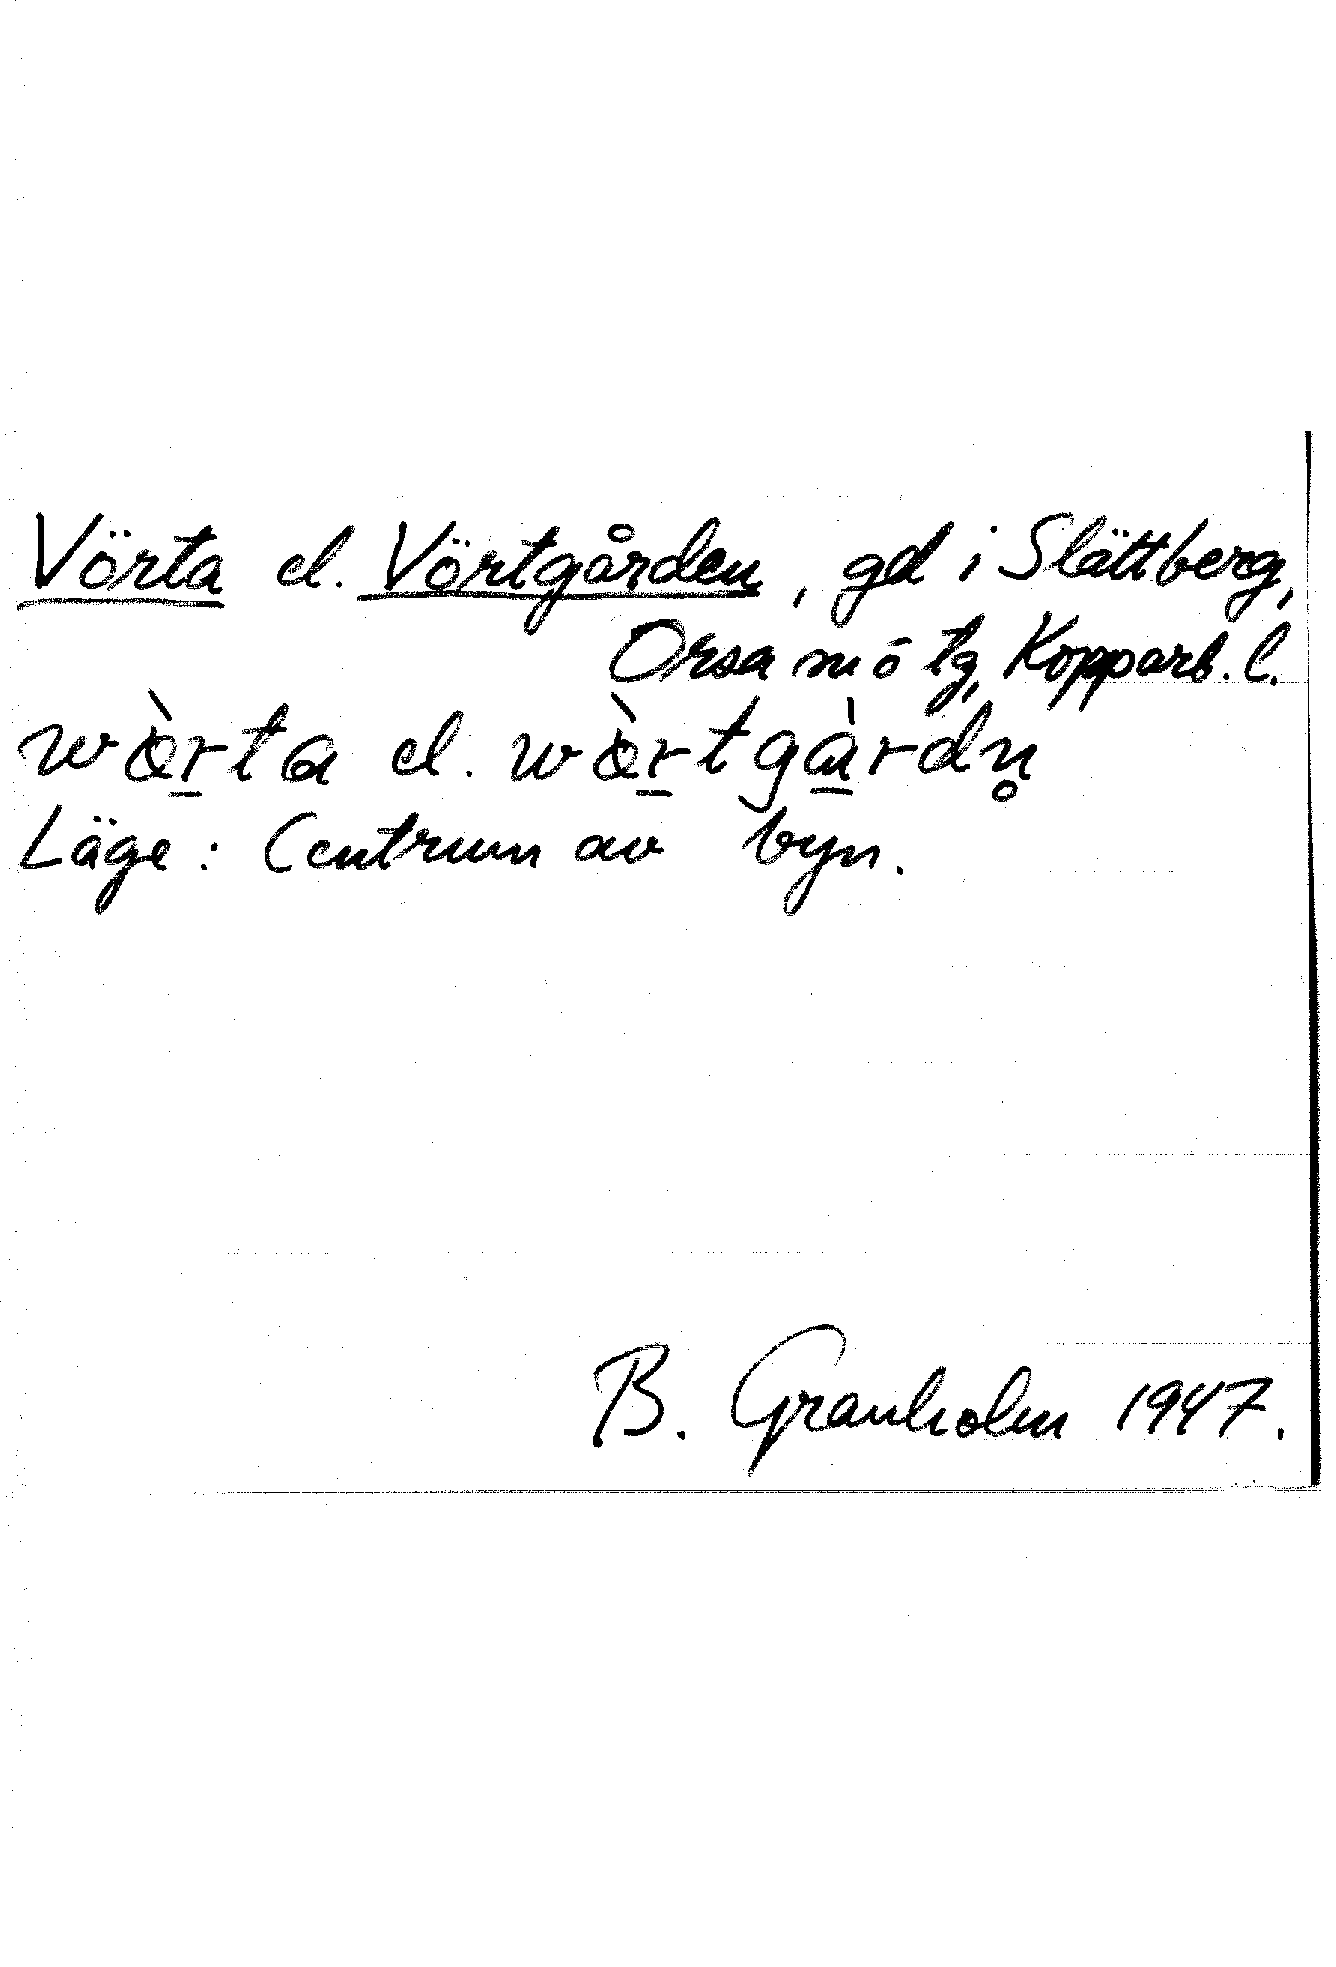 Vörta el. Vörtgården, gd i Slättberg,
Orsa m ö tg, Kopparb. l.
wòr̠ta el. wòr̠tgà̠rdn̥
Läge: Centrum av byn.
B. Granholm 1947.